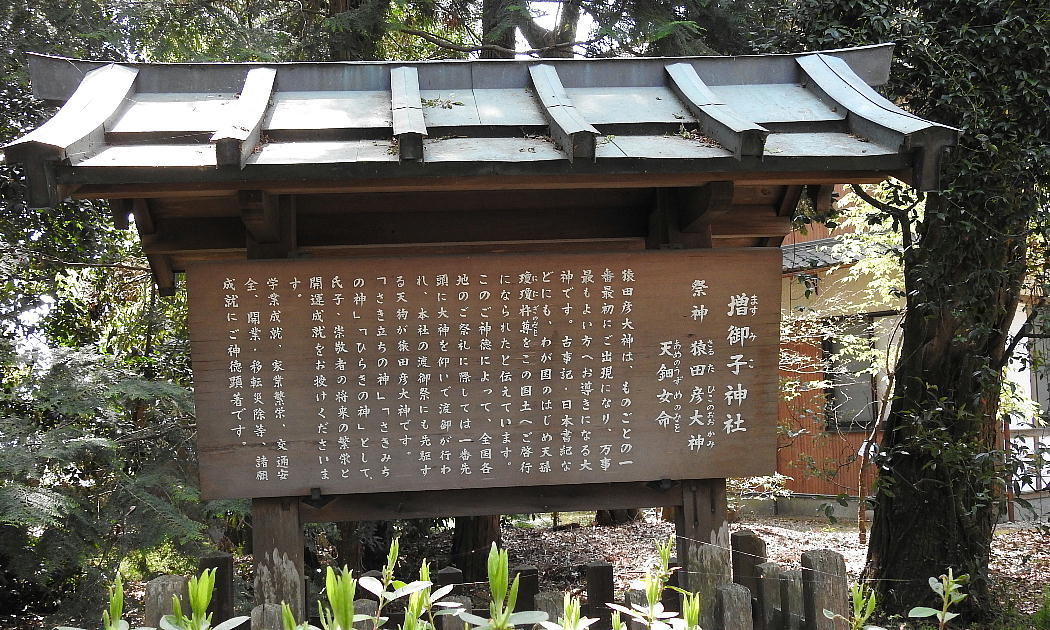 増御子神社
ますみこ
祭神 猿田彦大神
さるたひこのおおかみ
天鈿女命
あめのうずめのみこと
猿田彦大神は、ものごとの一
番最初にご出現になり、万事
最もよい方へお導きになる大
神です。古事記、日本書記な
どにも、わが国のはじめ天孫
瓊瓊杵尊をこの国土へご啓行
ににぎのみこと
になられたと伝えています。
このご神徳によって、全国各
地のご祭礼に際しては一番先
頭に大神を仰いで渡御が行わ
れ、本社の渡御祭にも先駆す
る天狗が猿田彦大神です。
「さき立ちの神」「さきみち
の神」「ひらきの神」として、
氏子、崇敬者の将来の繁栄と
開運成就をお授けくださいま
す。
学業成就、家業繁栄、交通安
全、開業・移転災除等、諸願
成就にご神徳顕著です。